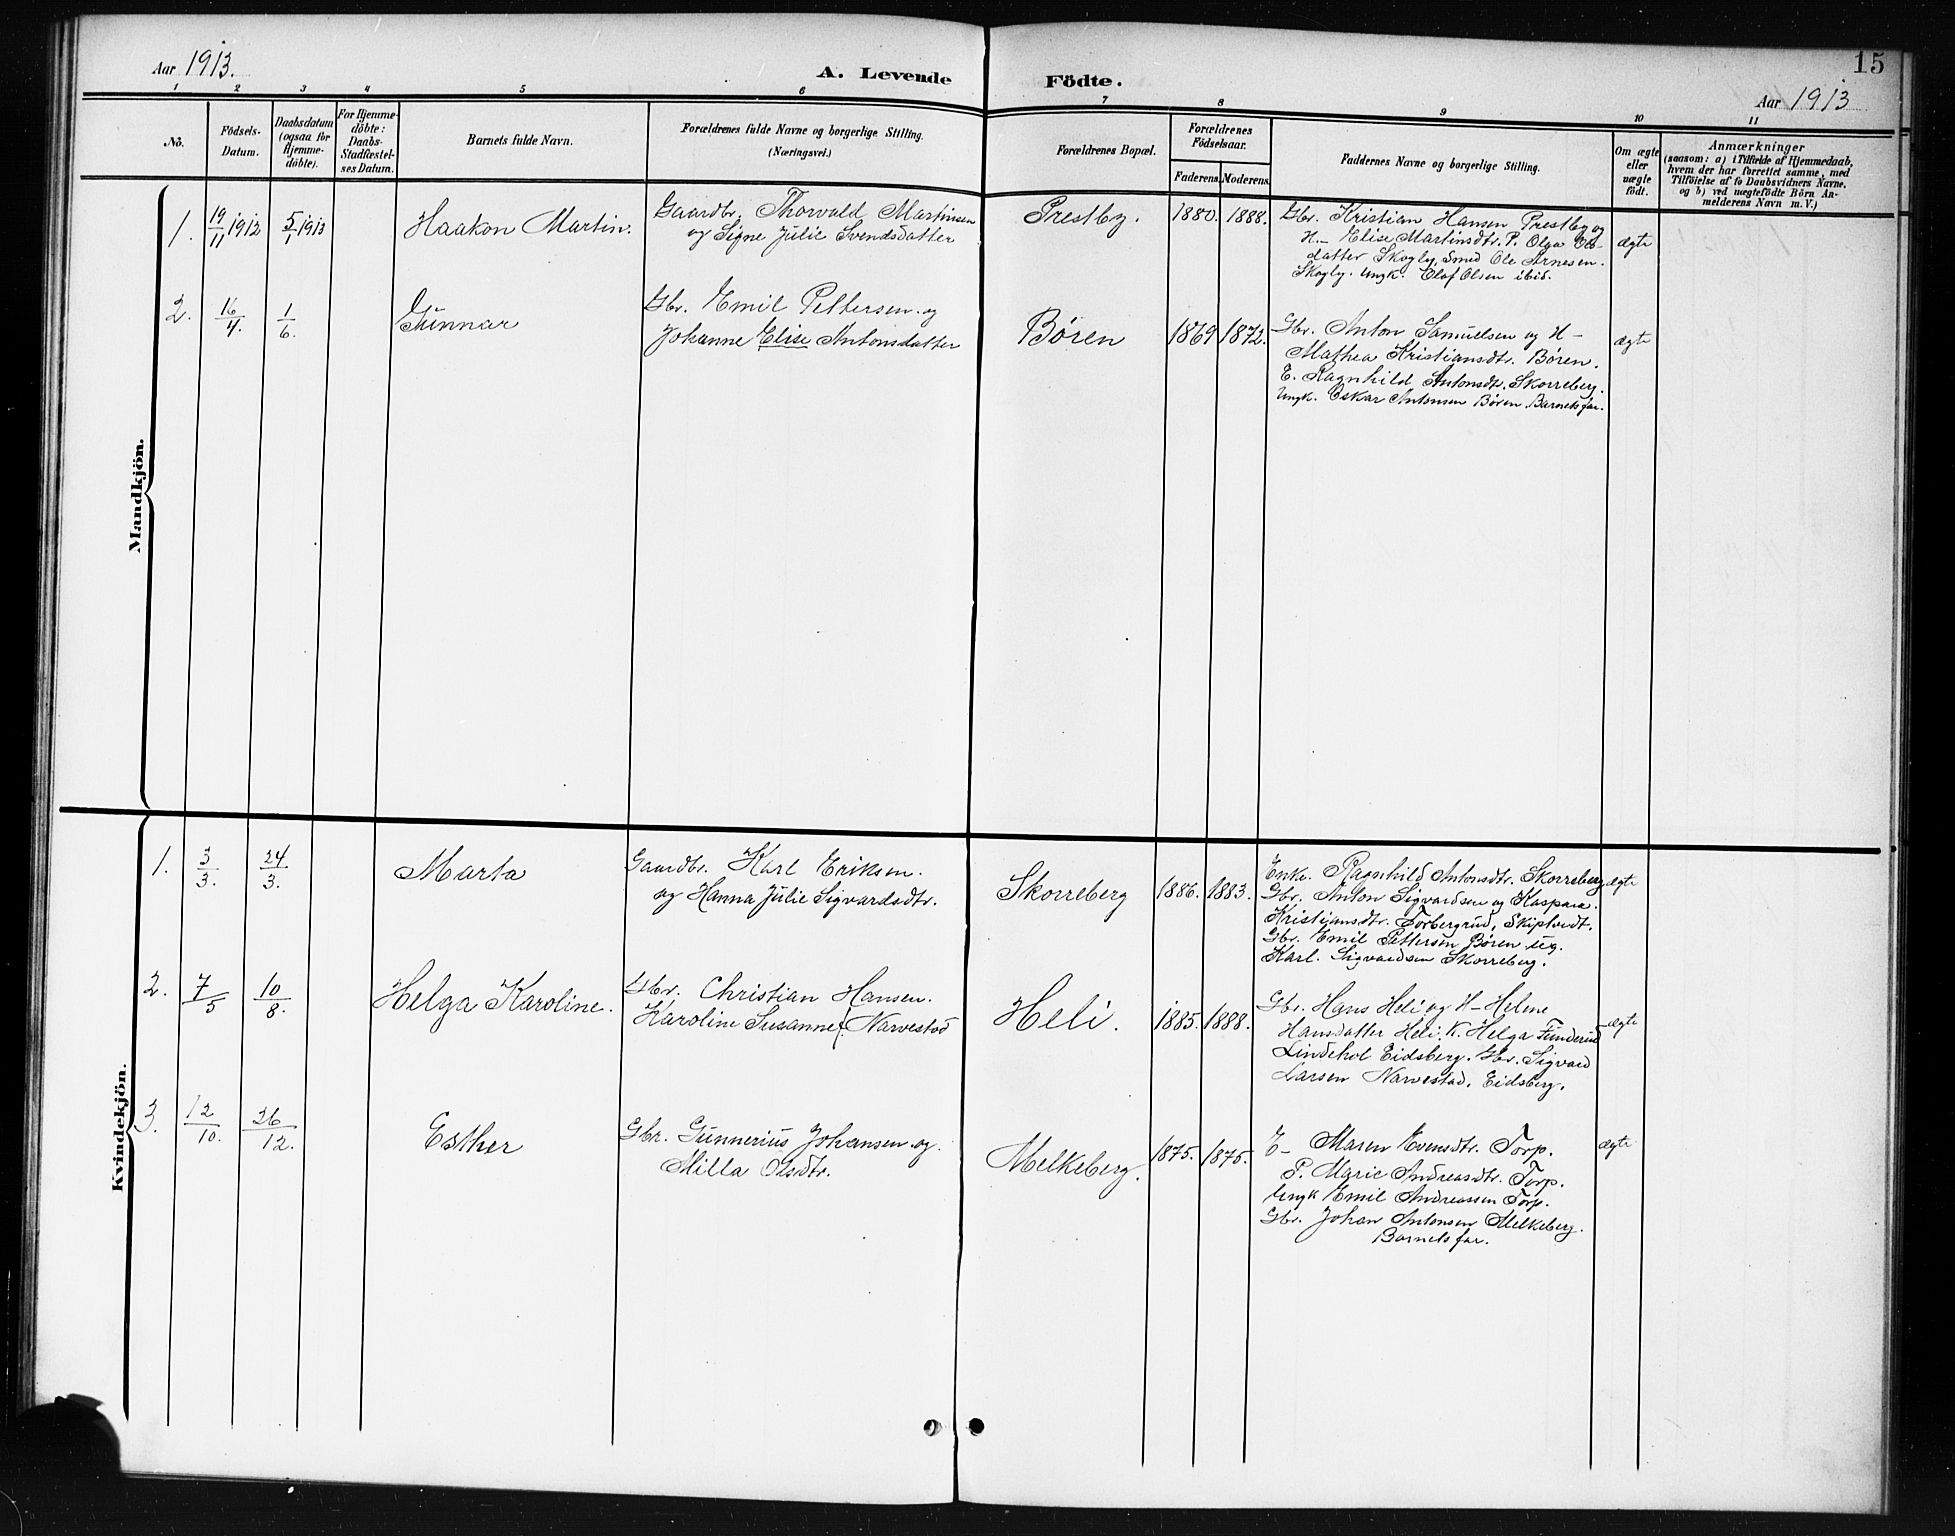 Aar 1913.
A. Levende Födte.
15
Aar 1913
1 2 3 4 5 6 7 8 9 10 11
No.
Födsels-
Datum.
Daabsdatum
(ogsaa for
Hjemme-
döbte).
For Hjemme-
döbte:
Daabs-
Stadfæstel-
ses Datum.
Barnets fulde Navn.
Forældrenes fulde Navne og borgerlige Stilling.
(Næringsvei.)
Forældrenes Bopæl.
Forældrenes
Födselsaar.
Faderens. Moderens.
Faddernes Navne og borgerlige Stilling.
Om ægte
eller
uægte
födt.
Anmærkninger
(saasom: a) i Tilfælde af Hjemmedaab,
hvem der har forrettet samme, med
Tilföielse af to Daabsvidners Navne,
og b) ved uægtefödte Börn An-
melderens Navn m. V.)
Mandkjön.
1. 19/11 1912 5/1 1913 Haakon Martin.
Gaardbr. Thorvald Martinsen
og Signe Julie Svendsdatter
Prestby. 1880. 1888.
Gbr. Kristian Hansen Prestby og
H- Elise Martinsdtr. P. Olga Ols-
datter Skogly, Smed Ole Arnesen.
Skogly. Ungk. Olaf Olsen ibid.
ægte
2. 16/4. 1/6. Gunnar
Gbr. Emil Pettersen og
Johanne Elise Antonsdatter
Børen 1869 1872.
Gbr. Anton Samuelsen og H-
Mathea Kristiansdtr. Børen.
E. Ragnhild Antonsdtr. Skorreberg.
Ungk. Oskar Antonsen Børen. Barnets far.
ægte
Kvindekjön.
1. 3/3. 24/3. Marta
Gaardbr. Karl Eriksen.
og Hanna Julie Sigvardsdtr.
Skorreberg 1886. 1883.
Enke. Ragnhild Antonsdtr. Skorreberg
Gbr. Anton Sigvardsen og Kaspara.
Kristiansdtr. Torbergrud, Skiptvedt.
Gbr. Emil Pettersen Børen
Karl. Sigvardsen Skorreberg.
ægte
2. 7/5 10/8. Helga Karoline.
Gbr. Christian Hansen.
Karoline Susanne f. Narvestad
Heli. 1885. 1888.
Gbr. Hans Heli og H- Helene
Hansdatter Heli. K. Helga Funderud
Lindehol Eidsberg. Gbr. Sigvard
Larsen Narvestad, Eidsberg.
ægte
3. 12/10. 26/12. Esther
Gbr. Gunnerius Johansen og
Milla Olsdtr.
Melkeberg. 1875. 1875.
E- Maren Evensdtr. Torp.
P. Marie Andreasdtr. Torp.
Ungk Emil Andreassen Torp.
Gbr. Johan Antonsen Melkeberg.
Barnets far.
ægte